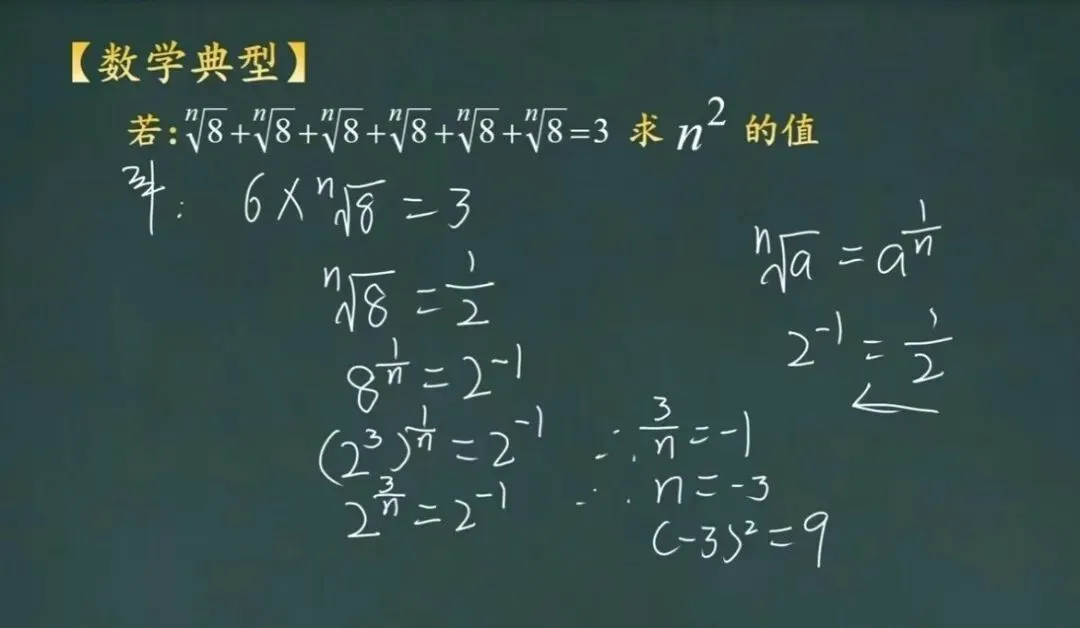 【数学典型】
若:ⁿ√8+ⁿ√8+ⁿ√8+ⁿ√8+ⁿ√8+ⁿ√8=3 求 n² 的值
解: 6×ⁿ√8=3
ⁿ√8=1/2
8^(1/n)=2^-1
(2³)^(1/n)=2^-1
2^(3/n)=2^-1
∴ 3/n=-1
∴ n=-3
(-3)²=9
ⁿ√a=a^(1/n)
2^-1=1/2